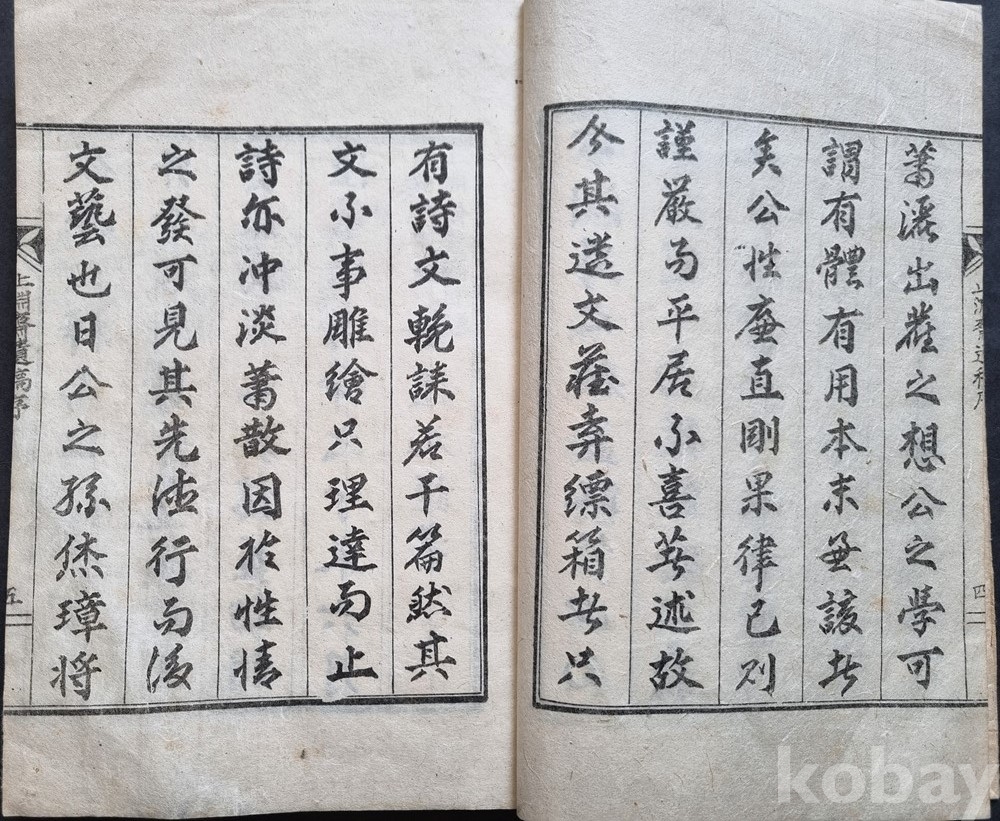 蕭灑出塵之想公之學可
謂有體有用本末兼該者
矣公性廉直剛果律己則
謹嚴而平居不喜著述故
今其遺文莊弆縹箱者只
上淵齋遺稿序
四
有詩文輓誄若干篇然其
文不事雕繪只理達而止
詩亦冲淡蕭散因於性情
之發可見其先德行而後
文藝也日公之孫烋璋將
上淵齋遺稿序
五
kobay